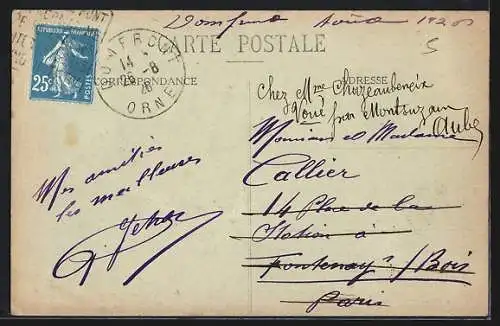 Domfront Août 1926
CARTE POSTALE
CORRESPONDANCE
ADRESSE
25c
DOMFRONT
14
8
26
ORNE
5
Chez Mme
Voué par Montsuzain
Aube
Monsieur et Madame
Callier
14 Place de la
Station à
Fontenay s/Bois
Paris
Mes amitiés
les meilleures